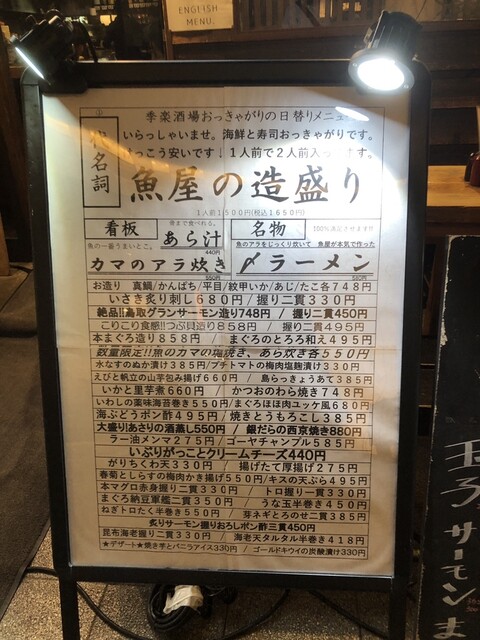 ENGLISH
MENU.
季楽酒場おっきゃがりの日替りメニュー
いらっしゃいませ。海鮮と寿司おっきゃがりです。
けっこう安いです！１人前で２人前入ってます。
代名詞
魚屋の造盛り
１人前１５００円(税込１６５０円)
看板
骨まで食べれる。
あら汁
440円
魚の一番うまいとこ。
カマのアラ炊き
550円
名物
100%満足させます!!
魚のアラをじっくり炊いて 魚屋が本気で作った
〆ラーメン
580円
お造り 真鯛/かんぱち/平目/紋甲いか/あじ/たこ各７４８円
いさき炙り刺し６８０円/握り二貫３３０円
絶品!!鳥取グランサーモン造り748円/ 握り二貫450円
こりこり食感!!つぶ貝造り８５８円/ 握り二貫４９５円
本まぐろ造り８５８円/ まぐろのとろろ和え４９５円
数量限定!!魚のカマの塩焼き、あら炊き各５５０円
水なすのぬか漬け３８５円/プチトマトの梅肉塩麹漬け３３０円
えびと帆立の山芋包み揚げ６６０円/ 島らっきょうあて３８５円
いかと里芋煮６６０円/ かつおのわら焼き７４８円
いわしの薬味海苔巻き５５０円/まぐろほほ肉ユッケ風６８０円
海ぶどうポン酢４９５円/焼きとうもろこし３８５円
大盛りあさりの酒蒸し550円/ 銀だらの西京焼き880円
ラー油メンマ２７５円/ゴーヤチャンプル５８５円
いぶりがっことクリームチーズ440円
がりちくわ天３３０円/ 揚げたて厚揚げ２７５円
春菊としらすの梅肉かき揚げ５５０円/キスの天ぷら４９５円
本マグロ赤身握り二貫３３０円/ トロ握り一貫３３０円
まぐろ納豆軍艦二貫３５０円/ うな玉半巻き４５０円
ねぎトロたく半巻き５５０円/ 芽ネギとろのせ二貫３８５円
炙りサーモン握りおろしポン酢三貫450円
昆布海老握り二貫３３０円/ 海老天タルタル半巻き４１８円
★デザート★焼き芋とバニラアイス330円/ ゴールドキウイの炭酸漬け330円
玉子
サーモン
ま